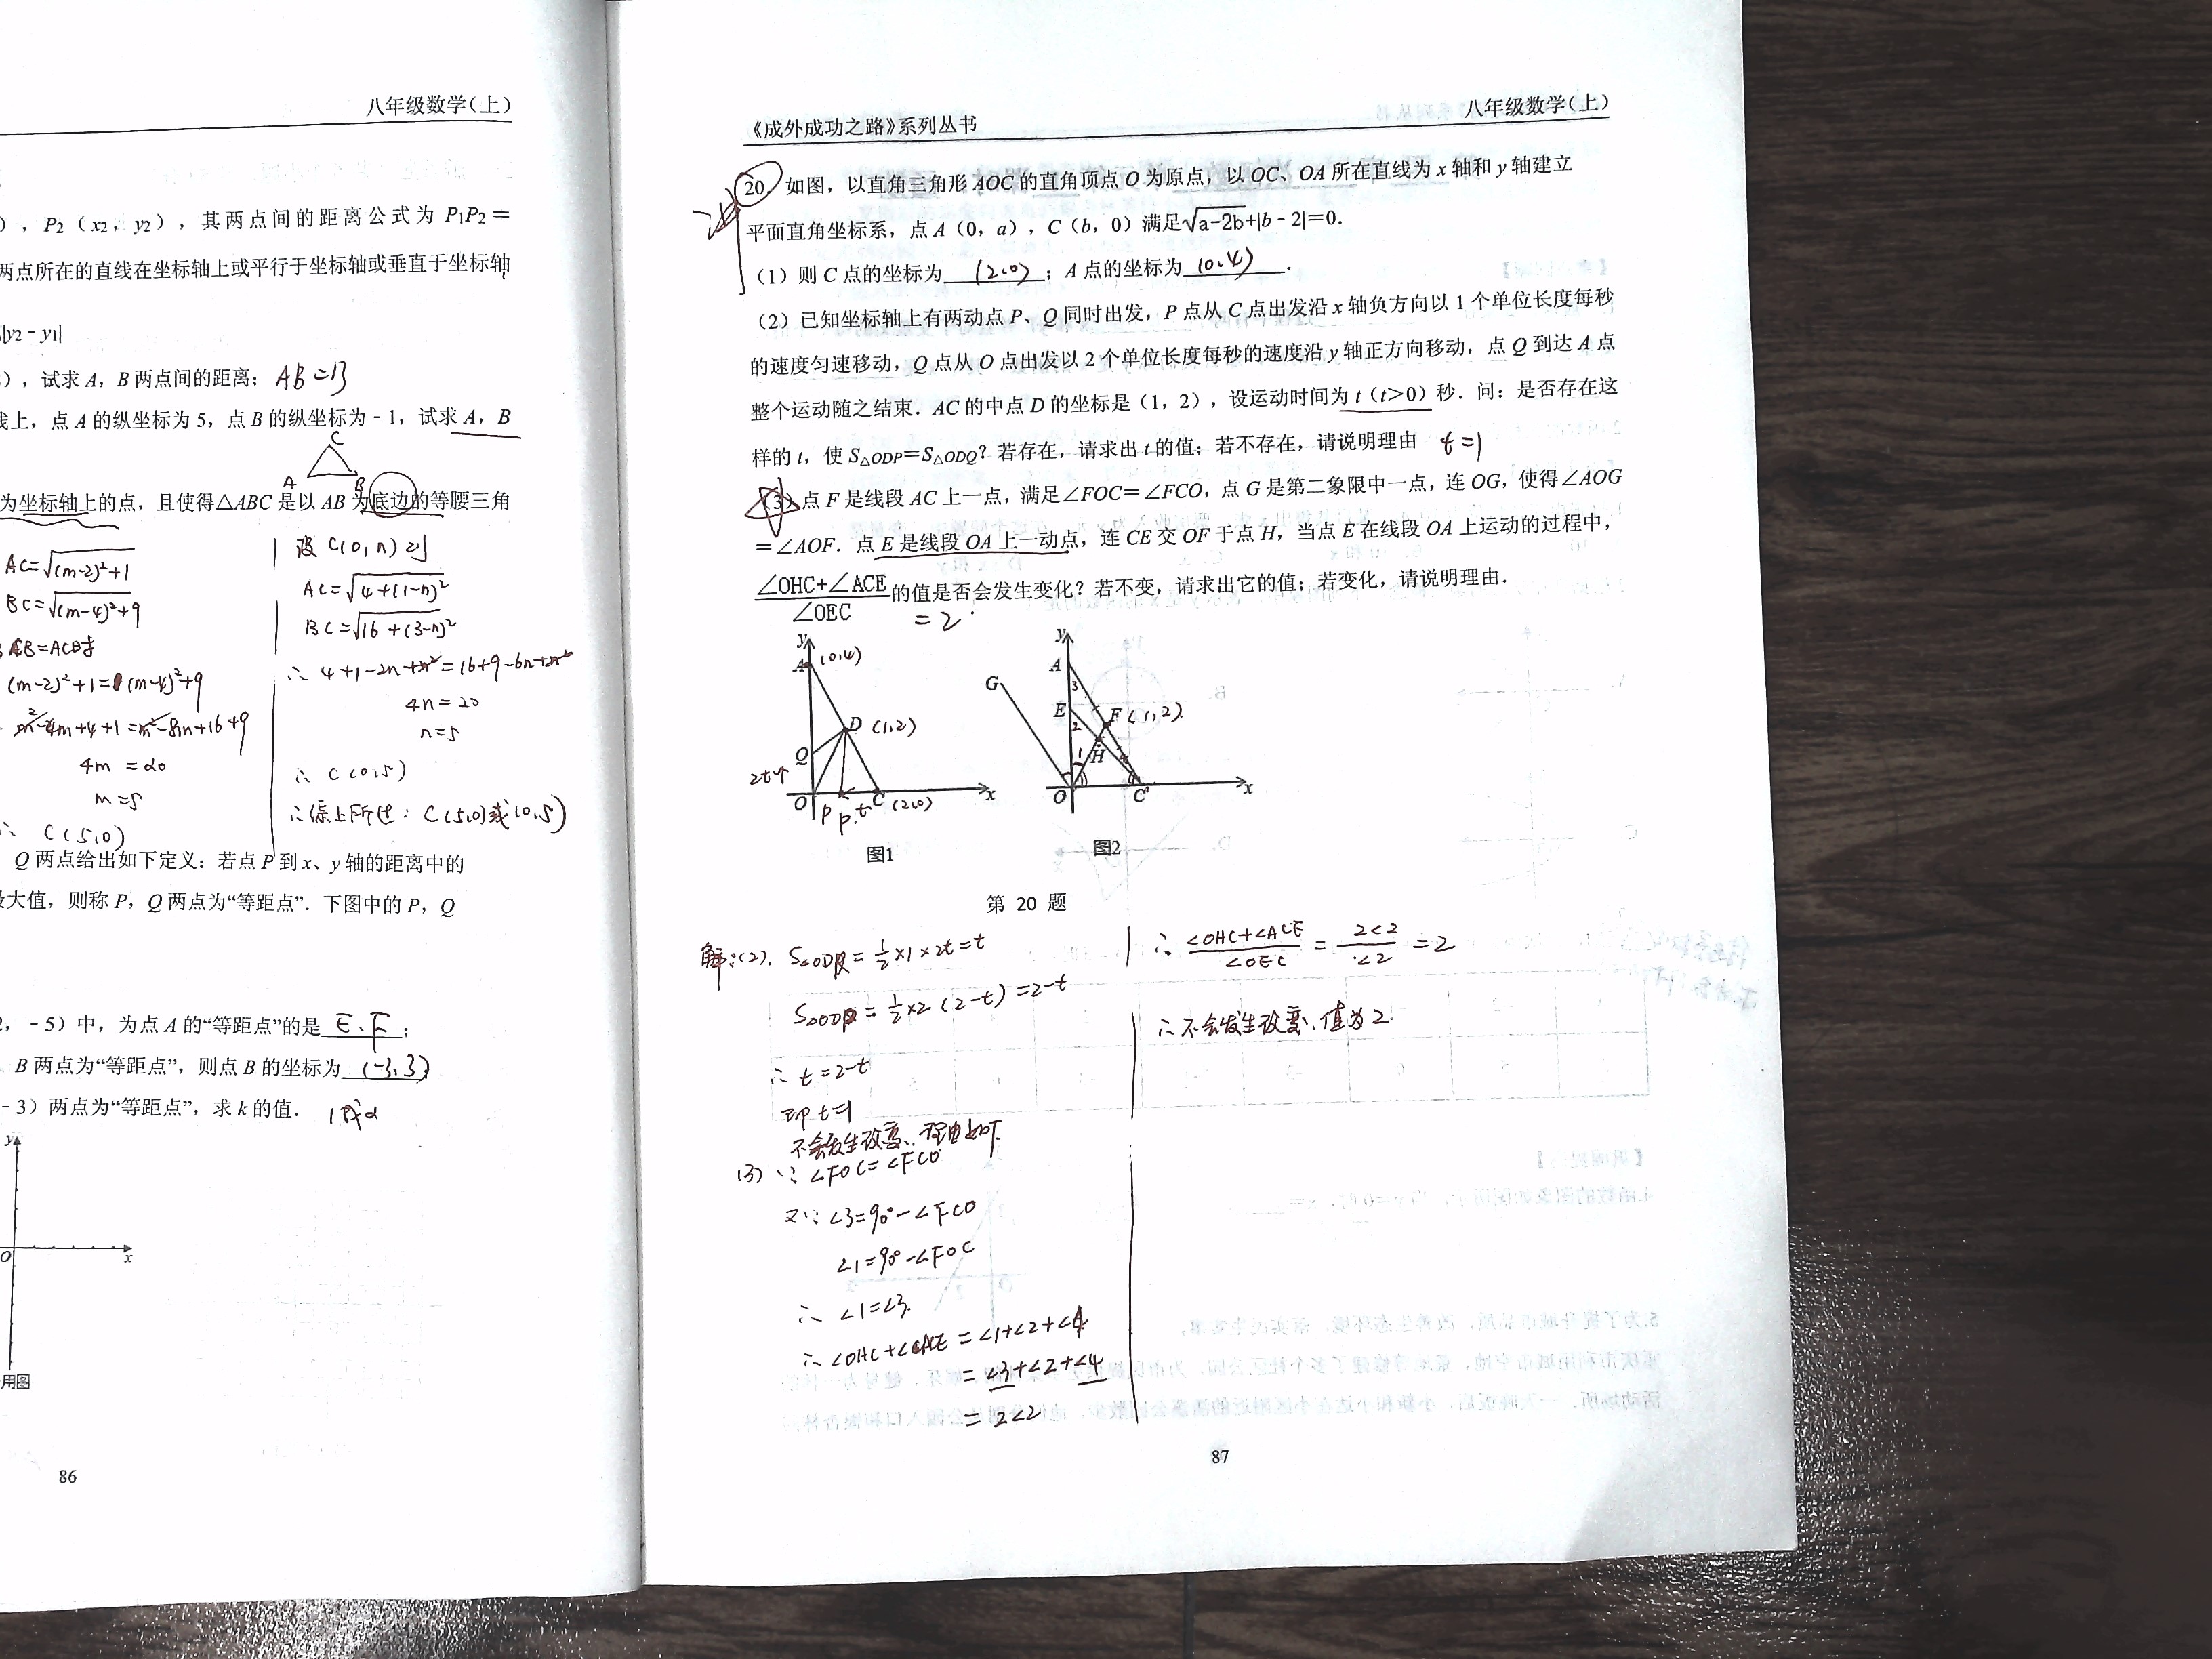 八年级数学(上)
),P₂(x₂,y₂),其两点间的距离公式为 P₁P₂=
两点所在的直线在坐标轴上或平行于坐标轴或垂直于坐标轴
|y₂-y₁|
),试求 A,B 两点间的距离; AB=13
线上,点 A 的纵坐标为 5,点 B 的纵坐标为-1,试求 A,B
C
A B
为坐标轴上的点,且使得△ABC 是以 AB 为底边的等腰三角
AC=√(m-2)²+1
BC=√(m-4)²+9
CB=AC时
(m-2)²+1=(m-4)²+9
m²-4m+4+1=m²-8m+16+9
4m=20
m=5
∴ C(5,0)
设 C(0,n) 则
AC=√4+(1-n)²
BC=√16+(3-n)²
∴ 4+1-2n+n²=16+9-6n+n²
4n=20
n=5
∴ C(0,5)
∴综上所述: C(5,0)或(0,5)
Q 两点给出如下定义:若点 P 到 x、y 轴的距离中的
最大值,则称 P,Q 两点为“等距点”.下图中的 P,Q
,-5)中,为点 A 的“等距点”的是 E、F ;
B 两点为“等距点”,则点 B 的坐标为 (-3,3)
-3)两点为“等距点”,求 k 的值. 1或2
y
O x
用图
86
《成外成功之路》系列丛书 八年级数学(上)
20.如图,以直角三角形 AOC 的直角顶点 O 为原点,以 OC、OA 所在直线为 x 轴和 y 轴建立
平面直角坐标系,点 A(0,a),C(b,0)满足√a-2b+|b-2|=0.
(1)则 C 点的坐标为 (2,0) ;A 点的坐标为 (0,4) .
(2)已知坐标轴上有两动点 P、Q 同时出发,P 点从 C 点出发沿 x 轴负方向以 1 个单位长度每秒
的速度匀速移动,Q 点从 O 点出发以 2 个单位长度每秒的速度沿 y 轴正方向移动,点 Q 到达 A 点
整个运动随之结束.AC 的中点 D 的坐标是(1,2),设运动时间为 t(t>0)秒.问:是否存在这
样的 t,使 S△ODP=S△ODQ?若存在,请求出 t 的值;若不存在,请说明理由 t=1
(3)点 F 是线段 AC 上一点,满足∠FOC=∠FCO,点 G 是第二象限中一点,连 OG,使得∠AOG
=∠AOF.点 E 是线段 OA 上一动点,连 CE 交 OF 于点 H,当点 E 在线段 OA 上运动的过程中,
∠OHC+∠ACE
∠OEC
的值是否会发生变化?若不变,请求出它的值;若变化,请说明理由.
=2.
y
A (0,4)
D (1,2)
Q
2t
O P t C (2,0) x
图1
y
A
G 3
E F (1,2)
2
1 H
O C x
图2
第 20 题
解:(2). S△ODQ=½×1×2t=t
S△ODP=½×2(2-t)=2-t
∴ t=2-t
即 t=1
不会发生改变,理由如下
(3) ∵ ∠FOC=∠FCO
又∵ ∠3=90°-∠FCO
∠1=90°-∠FOC
∴ ∠1=∠3.
∴ ∠OHC+∠ACE=∠1+∠2+∠4
=∠3+∠2+∠4
=2∠2
∴ ∠OHC+∠ACE/∠OEC=2∠2/∠2=2
∴不会发生改变,值为2.
87